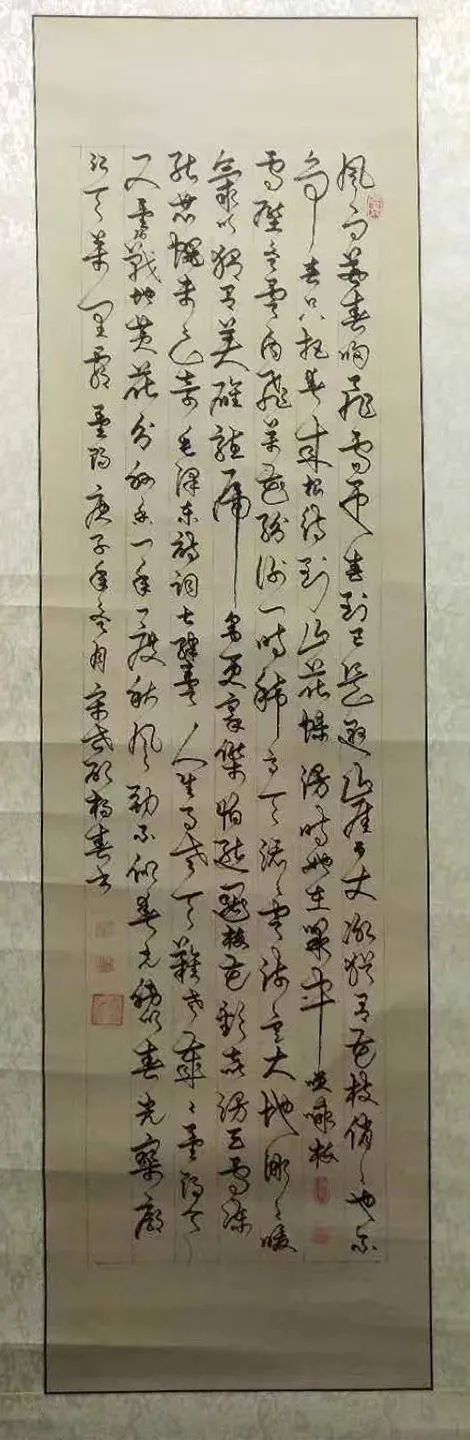 风雨送春归飞雪迎春到已是悬崖百丈冰犹有花枝俏俏也不
争春只把春来报待到山花烂漫时她在丛中笑咏梅
雪压冬云白絮飞万花纷谢一时稀高天滚滚寒流急大地微微暖
气吹独有英雄驱虎豹更无豪杰怕熊罴梅花欢喜漫天雪冻
死苍蝇未足奇毛泽东诗词七律冬云人生易老天难老岁岁重阳今
又重阳战地黄花分外香一年一度秋风劲不似春光胜似春光寥廓
江天万里霜重阳庚子年冬月春书